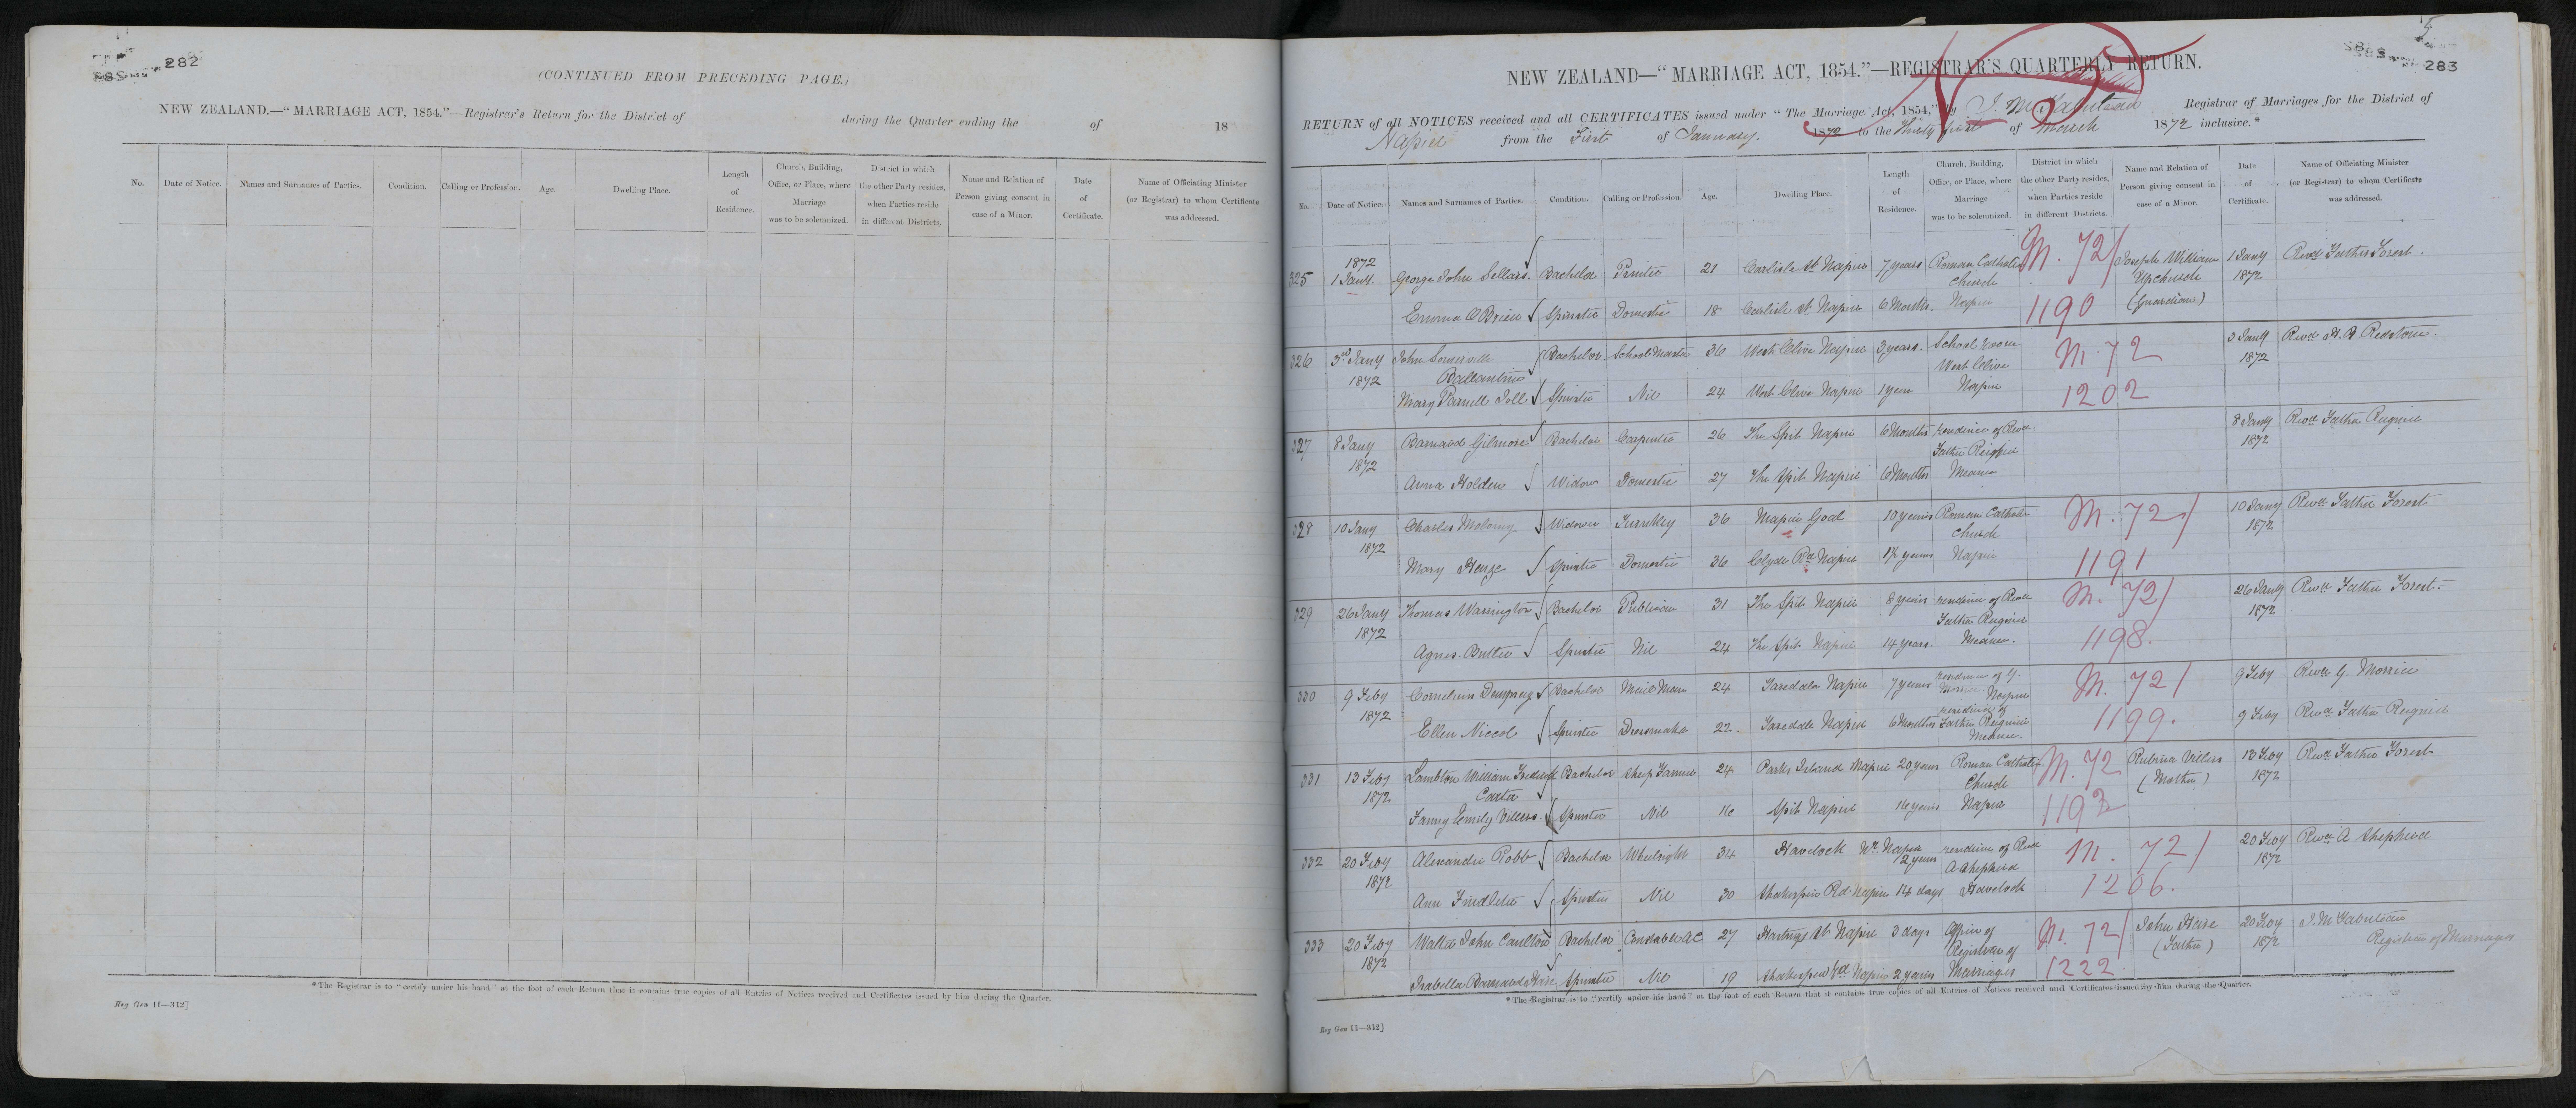 282
(CONTINUED FROM PRECEDING PAGE.)
NEW ZEALAND.—“MARRIAGE ACT, 1854.”—Registrar's Return for the District of during the Quarter ending the of 18
No. Date of Notice. Names and Surnames of Parties. Condition. Calling or Profession. Age. Dwelling Place. Length of Residence. Church, Building, Office, or Place, where Marriage was to be solemnized. District in which the other Party resides, when Parties reside in different Districts. Name and Relation of Person giving consent in case of a Minor. Date of Certificate. Name of Officiating Minister (or Registrar) to whom Certificate was addressed.
*The Registrar is to “certify under his hand” at the foot of each Return that it contains true copies of all Entries of Notices received and Certificates issued by him during the Quarter.
Reg Gen 11—312]
5
283
NEW ZEALAND—“MARRIAGE ACT, 1854.”—REGISTRAR'S QUARTERLY RETURN.
RETURN of all NOTICES received and all CERTIFICATES issued under “The Marriage Act, 1854,” by Registrar of Marriages for the District of
Napier from the First of January 1872 to the Thirty first of March 1872 inclusive.*
No. Date of Notice. Names and Surnames of Parties. Condition. Calling or Profession. Age. Dwelling Place. Length of Residence. Church, Building, Office, or Place, where Marriage was to be solemnized. District in which the other Party resides, when Parties reside in different Districts. Name and Relation of Person giving consent in case of a Minor. Date of Certificate. Name of Officiating Minister (or Registrar) to whom Certificate was addressed.
325 1872 1 Jany. George John Sellars. Bachelor Printer 21 Carlisle St Napier 7 years Roman Catholic Church M. 72/ Joseph William Upchurch 1 Jany 1872 Revd Father Forest.
Emma O'Brien Spinster Domestic 18 Carlisle St Napier 6 Months. Napier 1190 (Guardian)
326 3rd Jany 1872 John Somerville Ballantine Bachelor School Master 36 West Clive Napier 3 years. School room West Clive M. 72 3 Jany 1872 Revd Redstone.
Mary Parnell Toll Spinster Nil 24 West Clive Napier 1 year Napier 1202
327 8 Jany 1872 Barnard Gilmore Bachelor Carpenter 26 The Spit Napier 6 Months residence of Revd Father Reignier 8 Jany 1872 Revd Father Reignier
Anna Holden Widow Domestic 27 The Spit Napier 6 Months Meanee
328 10 Jany 1872 Charles Molony Widower Turnkey 36 Napier Goal 10 years Roman Catholic Church M. 72/ 10 Jany 1872 Revd Father Forest
Mary Spinster Domestic 36 Clyde Rd Napier 1½ years Napier 1191
329 26 Jany 1872 Thomas Warrington Bachelor Publican 31 The Spit Napier 8 years residence of Revd Father Reignier M. 72/ 26 Jany 1872 Revd Father Forest.
Agnes Butler Spinster Nil 24 The Spit Napier 14 years. Meanee. 1198.
330 9 Feby 1872 Cornelius Dempsey Bachelor Mail Man 24 Taradale Napier 7 years residence of G. Morrice Napier M. 72/ 9 Feby Revd G. Morrice
Ellen Niccol Spinster Dressmaker 22. Taradale Napier 6 Months residence of Father Reignier Meanee. 1199. 9 Feby Revd Father Reignier
331 13 Feby 1872 Lambton William Frederick Carter Bachelor Sheep Farmer 24 Parks Island Napier 20 years Roman Catholic Church M. 72 Rubina Villers (Mother) 13 Feby 1872 Revd Father Forest
Fanny Emily Villers. Spinster Nil 16 Spit Napier 16 years Napier 1192
332 20 Feby 1872 Alexander Robb Bachelor Wheelright 34 Havelock Nr. Napier 2 years residence of Revd A Shepherd M. 72/ 20 Feby 1872 Revd A Shepherd
Ann Findlater Spinster Nil 30 Shakespear Rd Napier 14 days Havelock 1206.
333 20 Feby 1872 Walter John Carlton Bachelor Constable AC 27 Hastings St Napier 3 days Office of Registrar of M. 72/ John Hare (Father) 20 Feby 1872 Registrar of Marriages
Isabella Barnard Hare Spinster Nil 19 Shakespear Rd Napier 2 years Marriages 1222
*The Registrar is to “certify under his hand” at the foot of each Return that it contains true copies of all Entries of Notices received and Certificates issued by him during the Quarter.
Reg Gen 11—312]